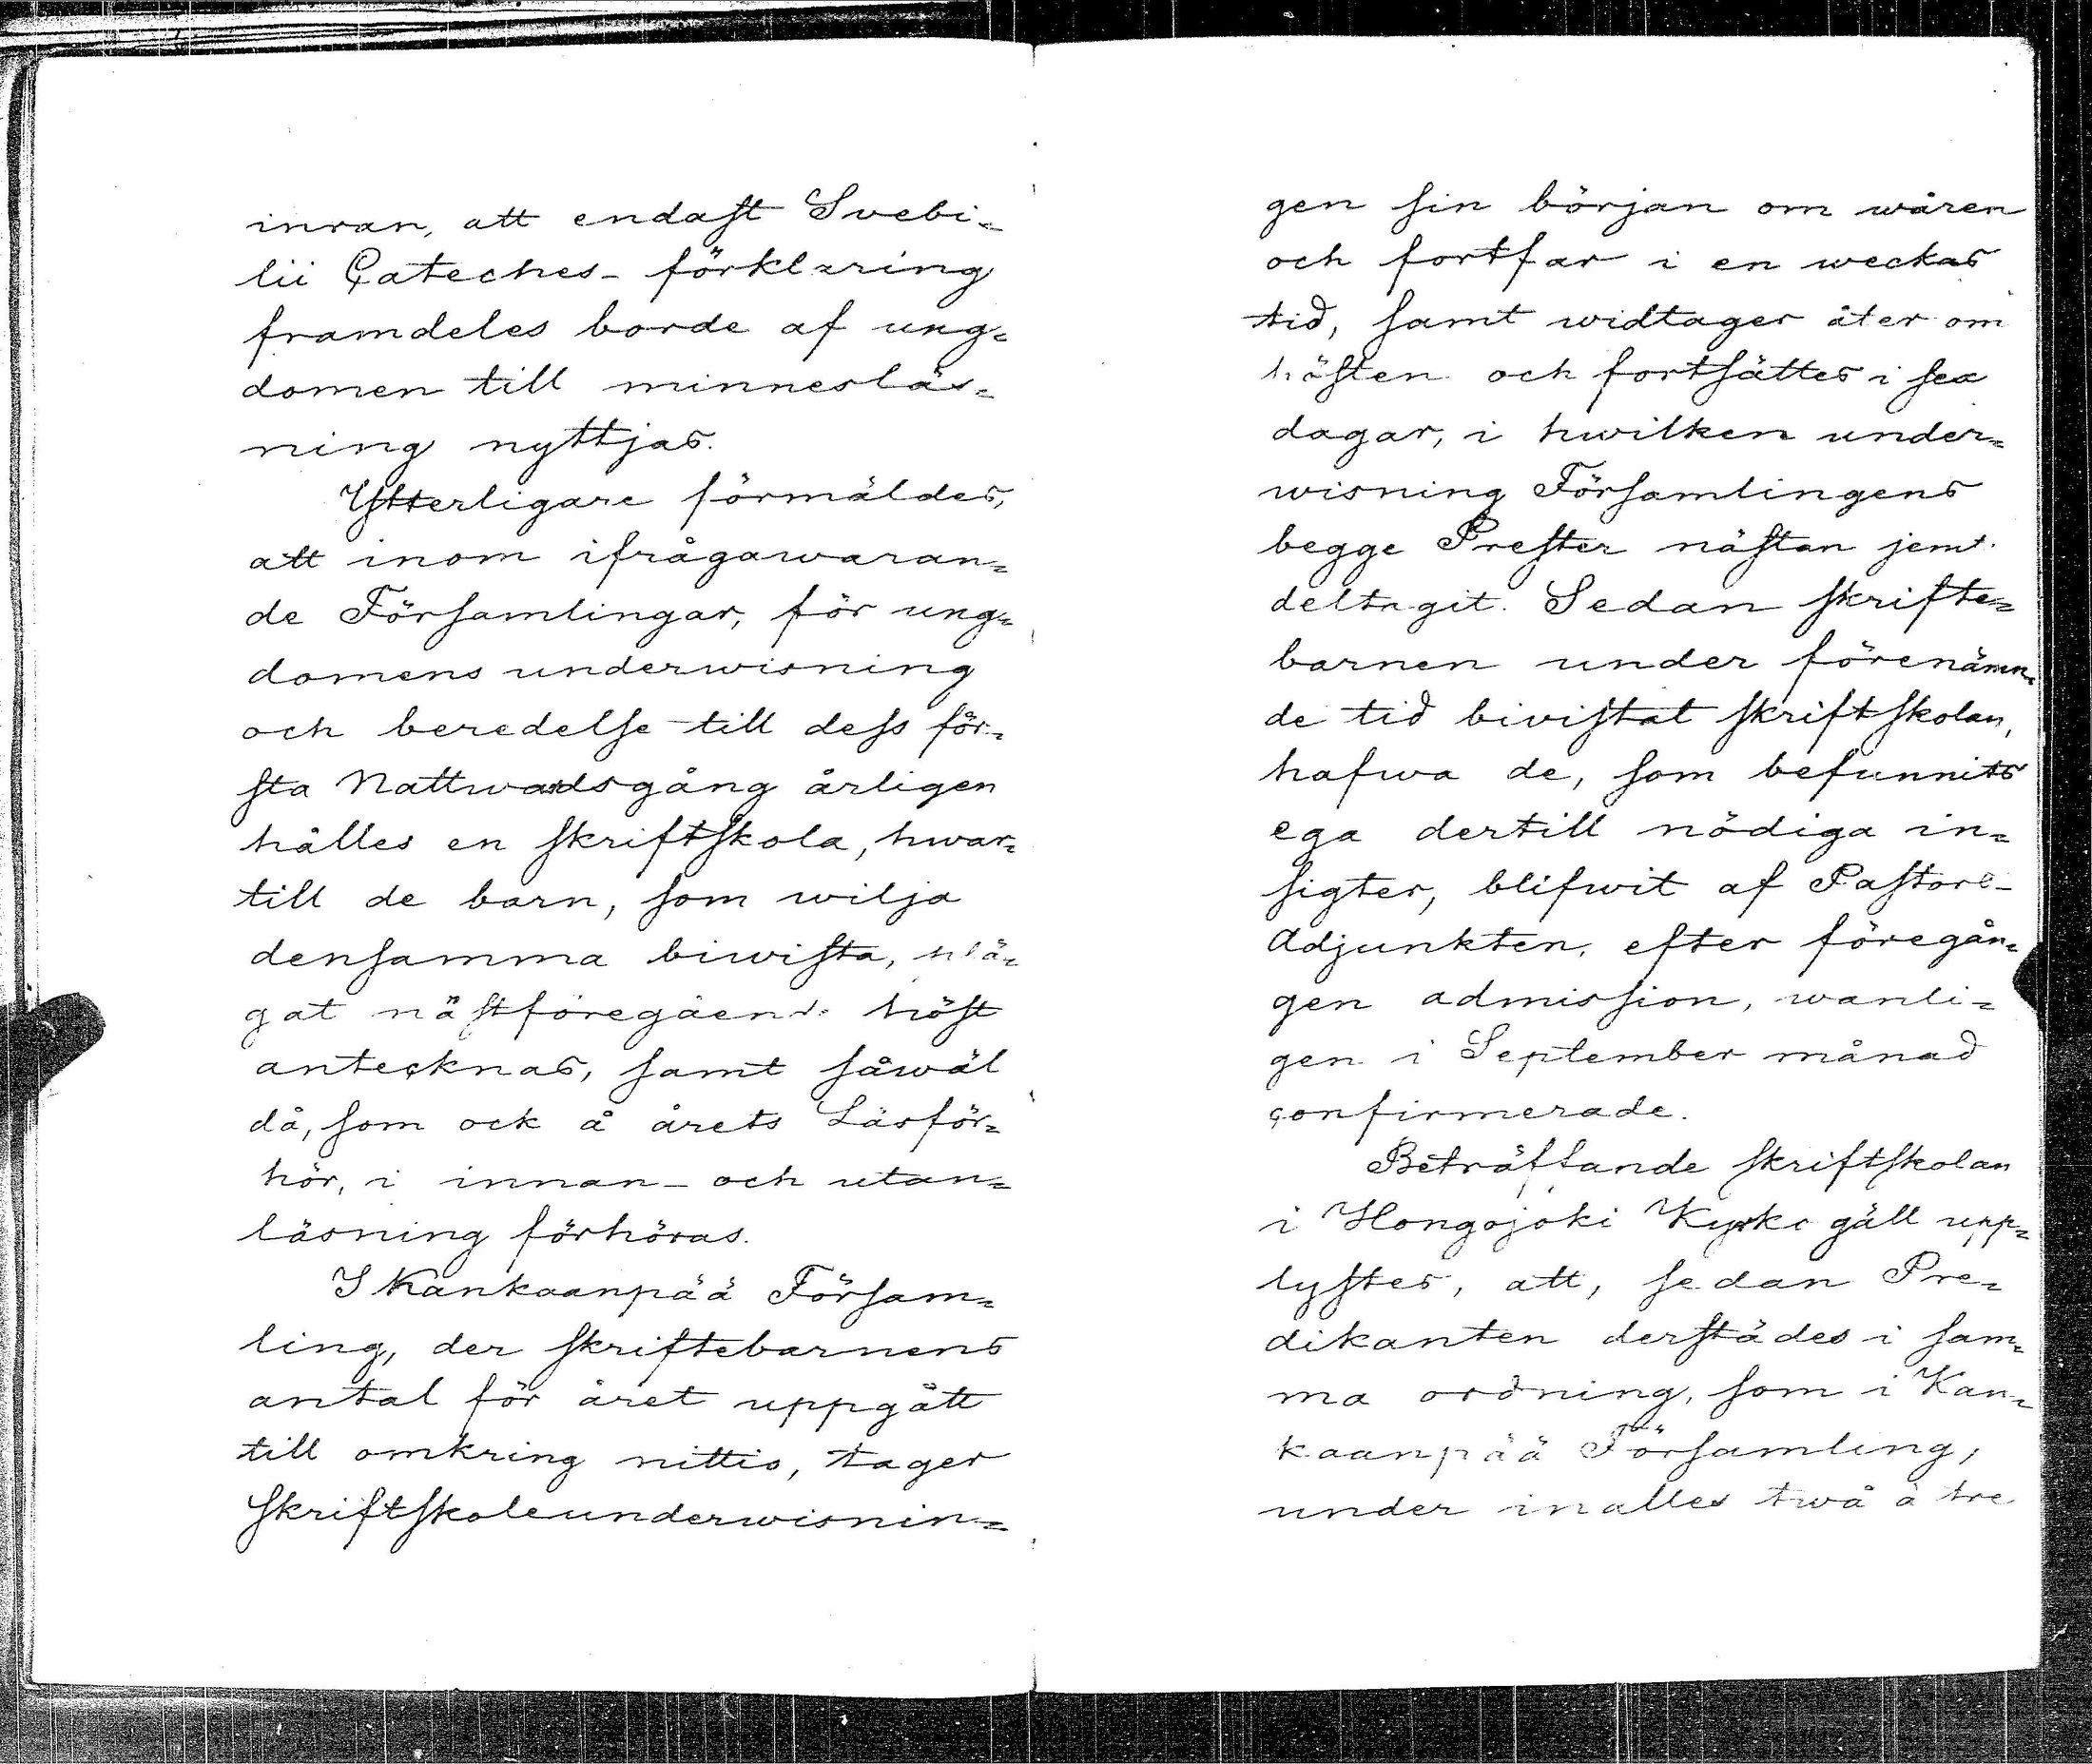 inran, att endast Svebi=
lii Cateches- förklaring
framdeles borde af ung=
domen till minnesläs=
ning nyttjas.
Ytterligare förmäldes,
att inom ifrågawaran=
de Församlingar, för ung=
domens underwisning
och beredelse till dess för=
sta Nattwardsgång årligen
hålles en skriftskola, hwar=
till de barn, som wilja
densamma biwista, plä=
gat nästföregående höst
antecknas, samt såwäl
då, som ock å årets Läsför=
hör, i innan- och utan=
läsning förhöras.
I Kankaanpää Försam=
ling, der skriftebarnens
antal för året uppgått
till omkring nittio, tager
Skriftskoleunderwisnin=
gen sin början om wåren
och fortfar i en weckas
tid, samt widtager åter om
hösten och fortsättes i sex
dagar, i hwilken under=
wisning Församlingens
begge Prester nästan jemt
deltagit. Sedan skrifte=
barnen under förenämn=
de tid bivistat skriftskolan,
hafwa de, som befunnits
ega dertill nödiga in=
sigter, blifwit af Pastors-
Adjunkten, efter föregån=
gen admission, wanli=
gen i September månad
confirmerade.
Beträffande skriftskolan
i Hongojoki Kyrko gäll upp=
lystes, att, sedan Pre=
dikanten derstädes i sam=
ma ordning, som i Kan=
kaanpää Församling,
under inalles twå à tre